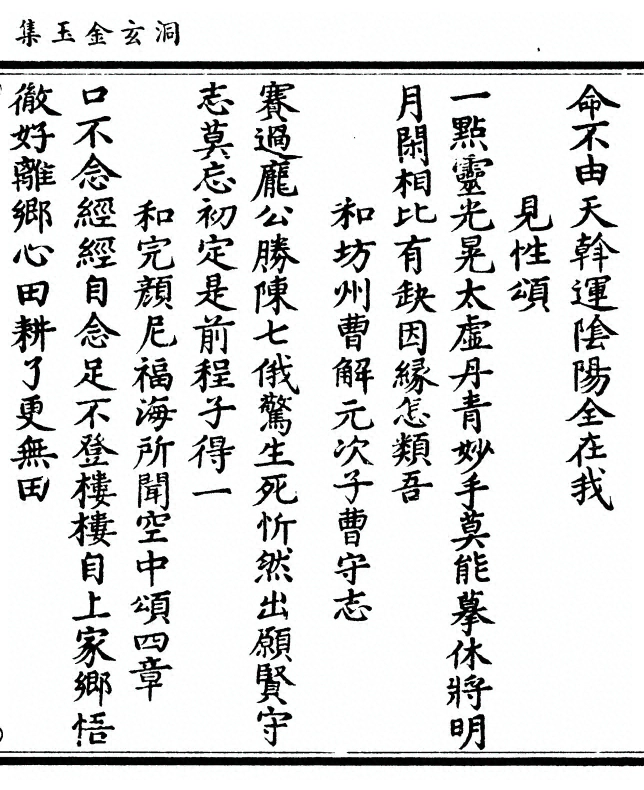 洞玄金玉集
命不由天斡運陰陽全在我
見性頌
一點靈光晃太虛丹青妙手莫能摹休將明
月閑相比有缺因緣怎類吾
和坊州曹解元次子曹守志
賽過龐公勝陳七俄驚生死忻然出願賢守
志莫忘初定是前程子得一
和完顏尼福海所聞空中頌四章
口不念經經自念足不登樓樓自上家鄉悟
徹好離鄉心田耕了更無田